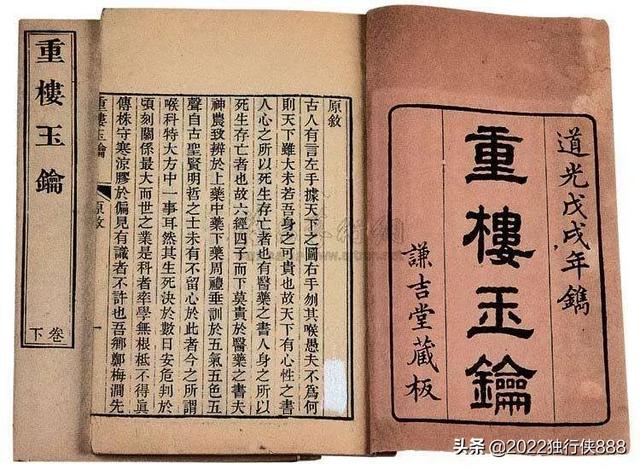 道光戊戌年鐫
重樓玉鑰
謙吉堂藏板
原敘
古人有言左手據天下之圖右手刎其喉愚夫不爲何
則天下雖大未若吾身之可貴也故天下有心性之書
人心之所以死生存亡者也有醫藥之書人身之所以
死生存亡者也故六經四子而下莫貴於醫藥之書夫
神農致辨於上藥中藥下藥周禮垂訓於五氣五色五
聲自古聖賢明哲之士未有不留心於此者今之所謂
喉科特大方中一事耳然其生死決於數日安危判於
頃刻關係最大而世之業是科者率學無根柢不得眞
傳株守寒涼膠於偏見有識者不許也吾鄉鄭梅澗先
重樓玉鑰
原敘
一
重樓玉鑰
下卷
头条 @2022独行侠888